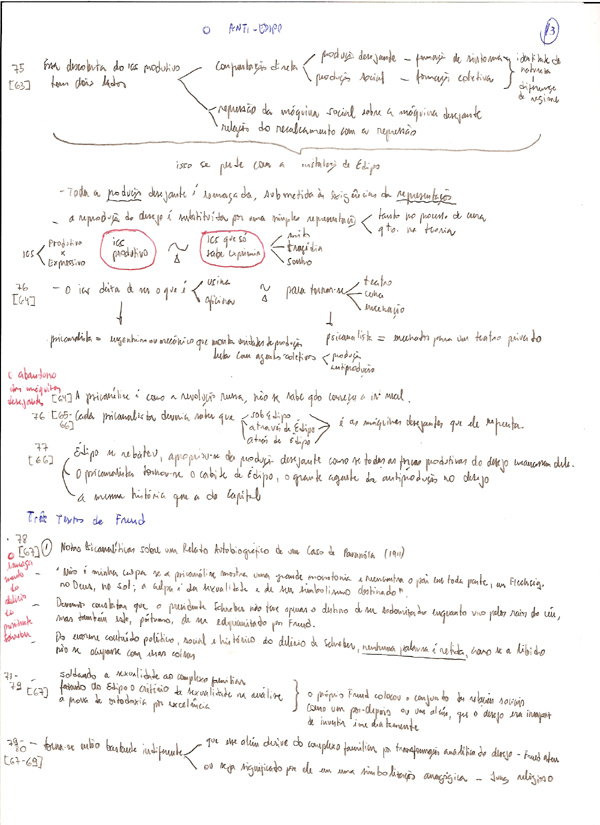 O ANTI-ÉDIPO
13
75 Essa descoberta do ics produtivo confrontação direta produção desejante - formação de sintomas identidade de natureza
[63] tem dois lados produção social - formações coletivas diferença de regime
- repressão da máquina social sobre a máquina desejante
relação do recalcamento com a repressão
isso se perde com a instalação de Édipo
- Toda a produção desejante é esmagada, submetida às exigências da representação
- a reprodução do desejo é substituída por uma simples representação tanto no processo de cura
qto. na teoria
ics Produtivo x Expressivo ics produtivo ~ ics que só sabe exprimir mito
tragédia
sonho
76 - O ics deixa de ser o que é usina ~ para tornar-se teatro
[64] oficina cena
encenação
psicanalista = engenheiro ou mecânico que monta unidades de produção psicanalista = encenador para um teatro privado
luta com agentes coletivos produção
antiprodução
o abandono
das máquinas
desejantes [64] A psicanálise é como a revolução russa, não se sabe qdo começa a ir mal.
76 [65-66] Cada psicanalista deveria saber que sob Édipo
através de Édipo é as máquinas desejantes que ele enfrenta.
atrás de Édipo
77 Édipo se rebateu, apropriou-se da produção desejante como se todas as forças produtivas do desejo emanassem dele.
[66] O psicanalista tornou-se o cabide de Édipo, o grande agente da antiprodução no desejo
a mesma história que a do Capital
Três Textos de Freud
78
[67] (1) Notas Psicanalíticas sobre um Relato Autobiográfico de um Caso de Paranóia (1911)
o esmagamento do delírio do presidente Schreber
- "Não é minha culpa se a psicanálise mostra uma grande monotonia e reencontra o pai em toda parte, em Flechsig,
no Deus, no sol; a culpa é da sexualidade e de seu simbolismo obstinado".
- Devemos constatar que o presidente Schreber não teve apenas o destino de ser sodomizado enquanto vivo pelos raios do céu,
mas também este, póstumo, de ser edipianizado por Freud.
- Do enorme conteúdo político, social e histórico do delírio de Schreber, nenhuma palavra é retida, como se a libido
não se ocupasse com essas coisas
78-79 [67] - soldando a sexualidade ao complexo familiar
fazendo do Édipo o critério da sexualidade na análise
a prova de ortodoxia por excelência
o próprio Freud colocou o conjunto das relações sociais
como um por-depois ou um além, que o desejo era incapaz
de investir imediatamente
79-80 - torna-se então bastante indiferente que esse além derive do complexo familiar por transformação analítica do desejo - Freud ateu
[67-69] ou seja significado por ele em uma simbolização anagógica - Jung religioso